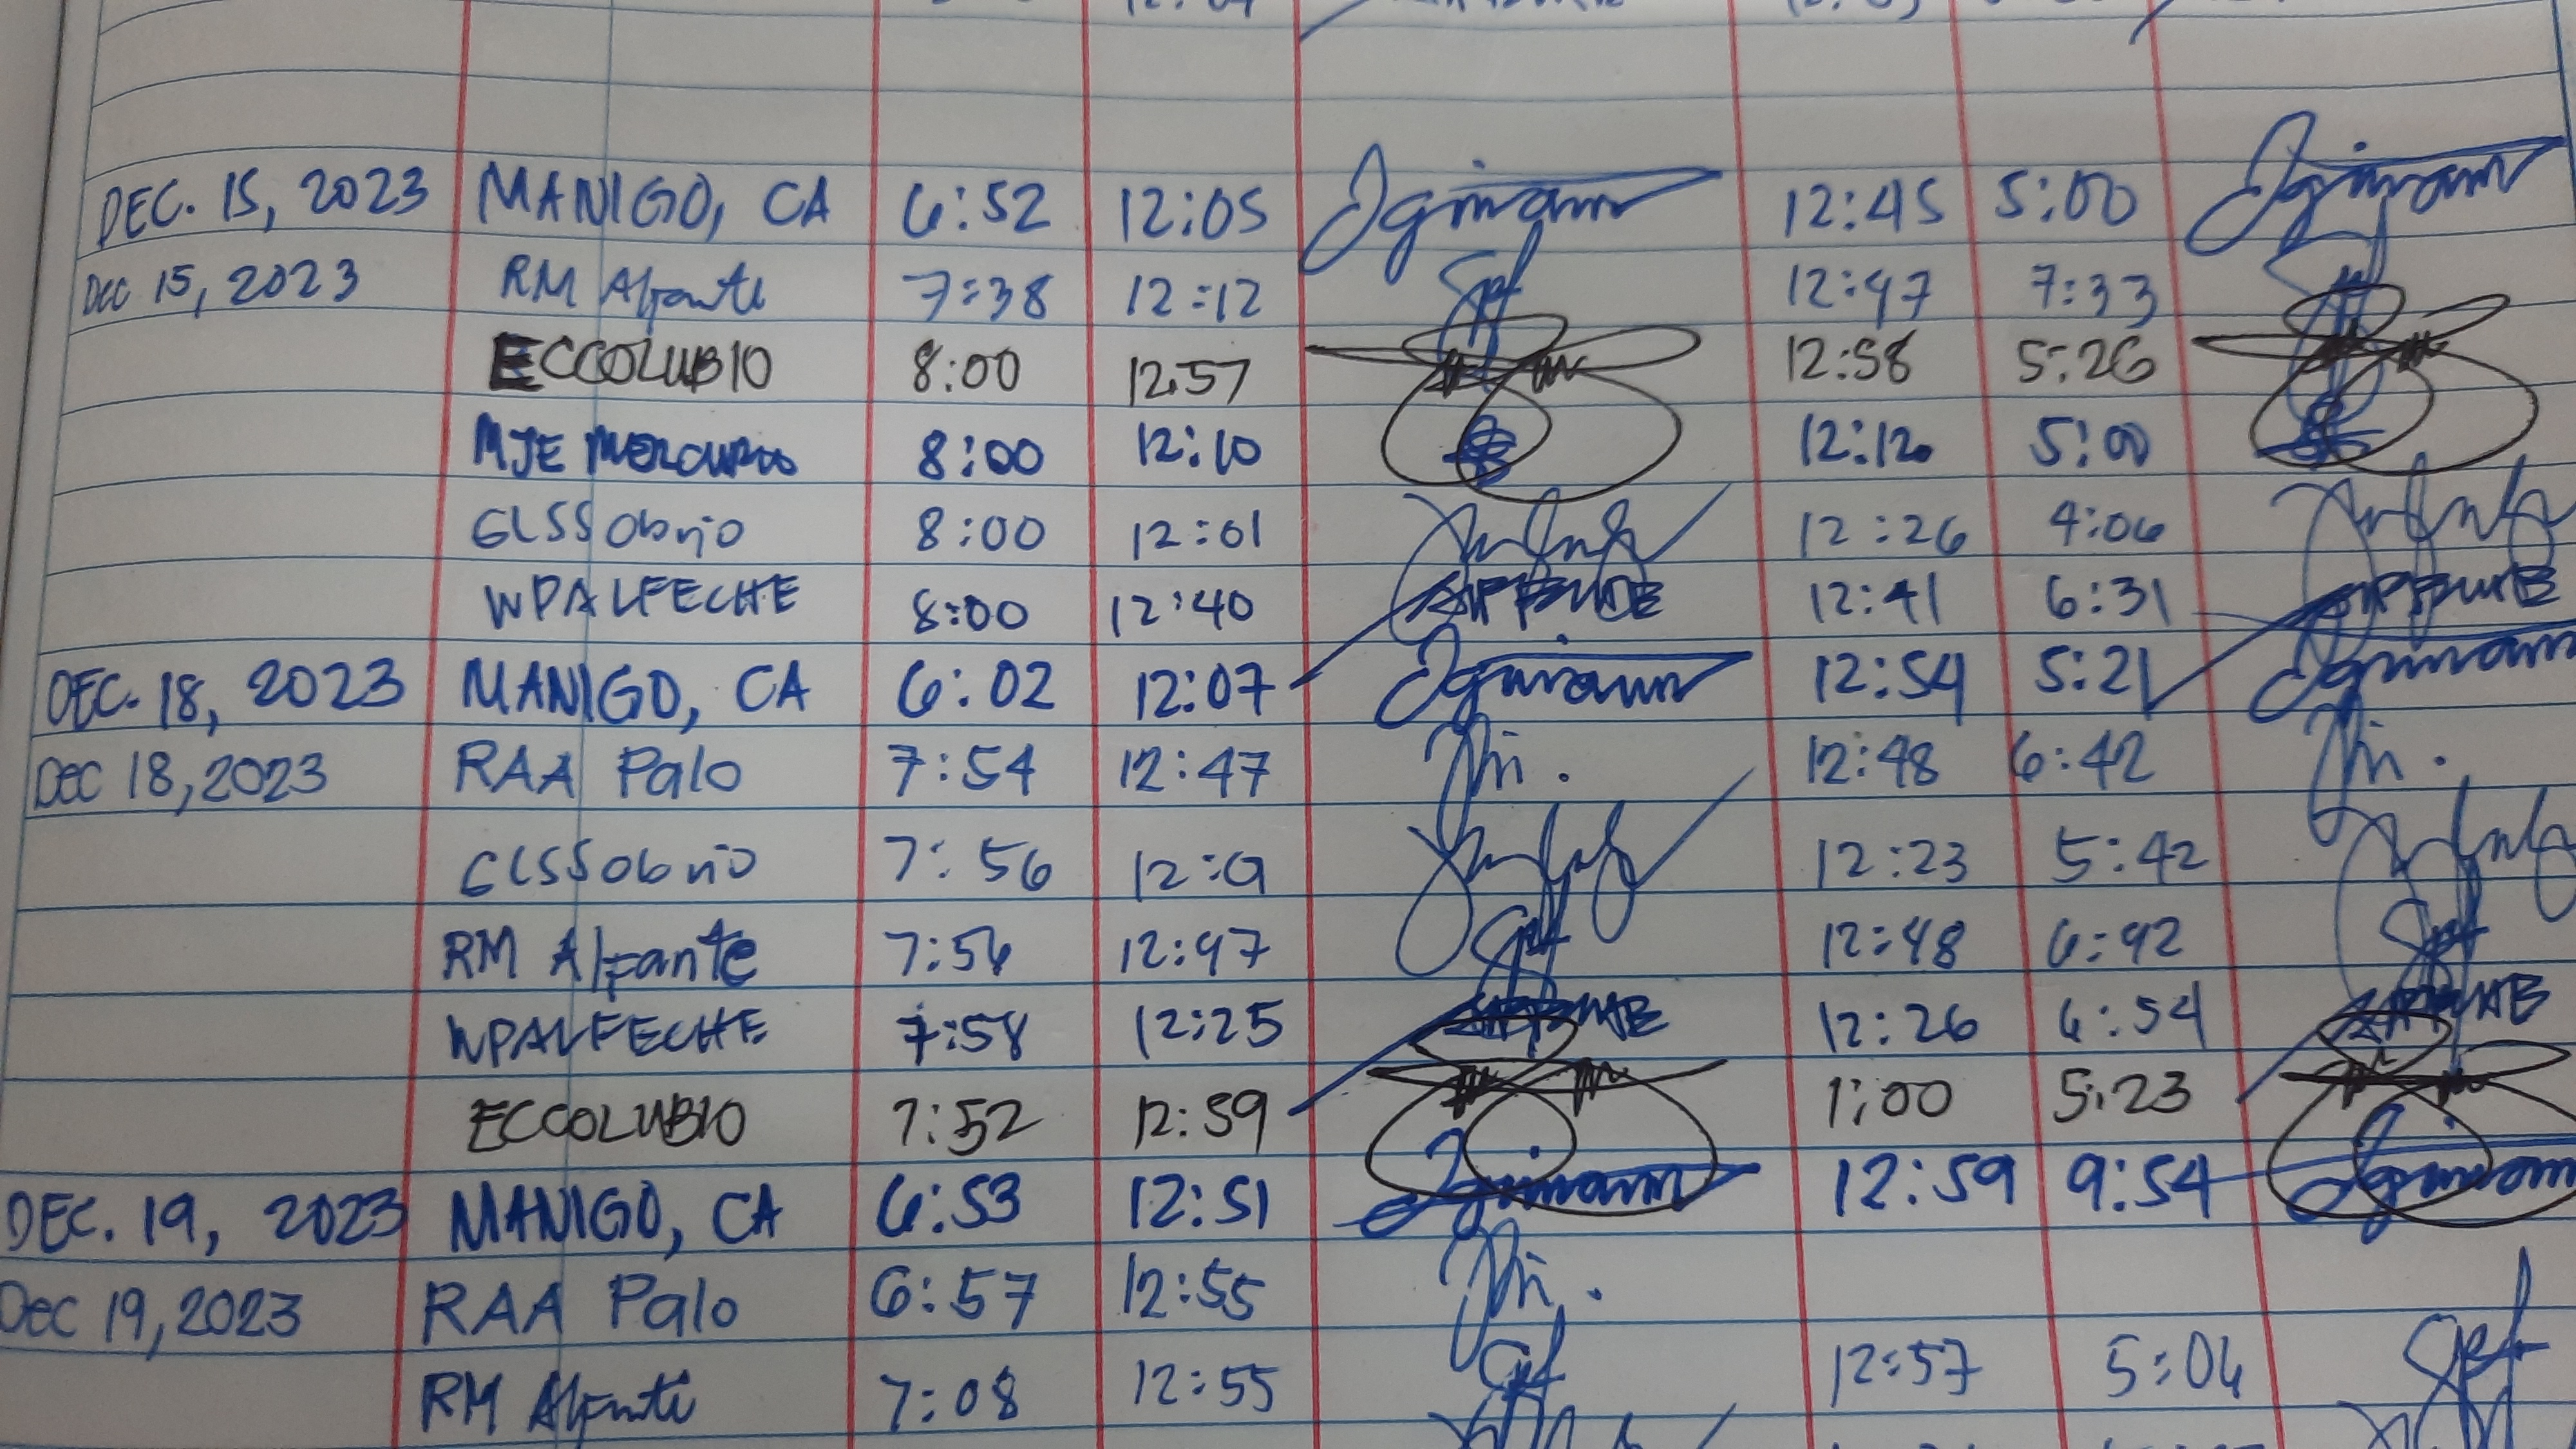 DEC. 15, 2023 MANIGO, CA 6:52 12:05 12:45 5:00
Dec 15, 2023 RM Alfante 7:38 12:12 12:47 7:33
ECCOLUBIO 8:00 12:57 12:58 5:26
MJE Mercurio 8:00 12:10 12:12 5:00
GLSSObrio 8:00 12:01 12:26 4:06
WPALFECHE 8:00 12:40 12:41 6:31
DEC. 18, 2023 MANIGO, CA 6:02 12:07 12:54 5:21
Dec 18, 2023 RAA Palo 7:54 12:47 12:48 6:42
GLSSObrio 7:56 12:23 5:42
RM Alfante 7:56 12:47 12:48 6:42
WPALFECHE 7:58 12:25 12:26 6:54
ECCOLUBIO 7:52 12:59 1:00 5:23
DEC. 19, 2023 MANIGO, CA 6:53 12:51 12:59 9:54
Dec 19, 2023 RAA Palo 6:57 12:55
RM Alfante 7:08 12:55 12:57 5:06